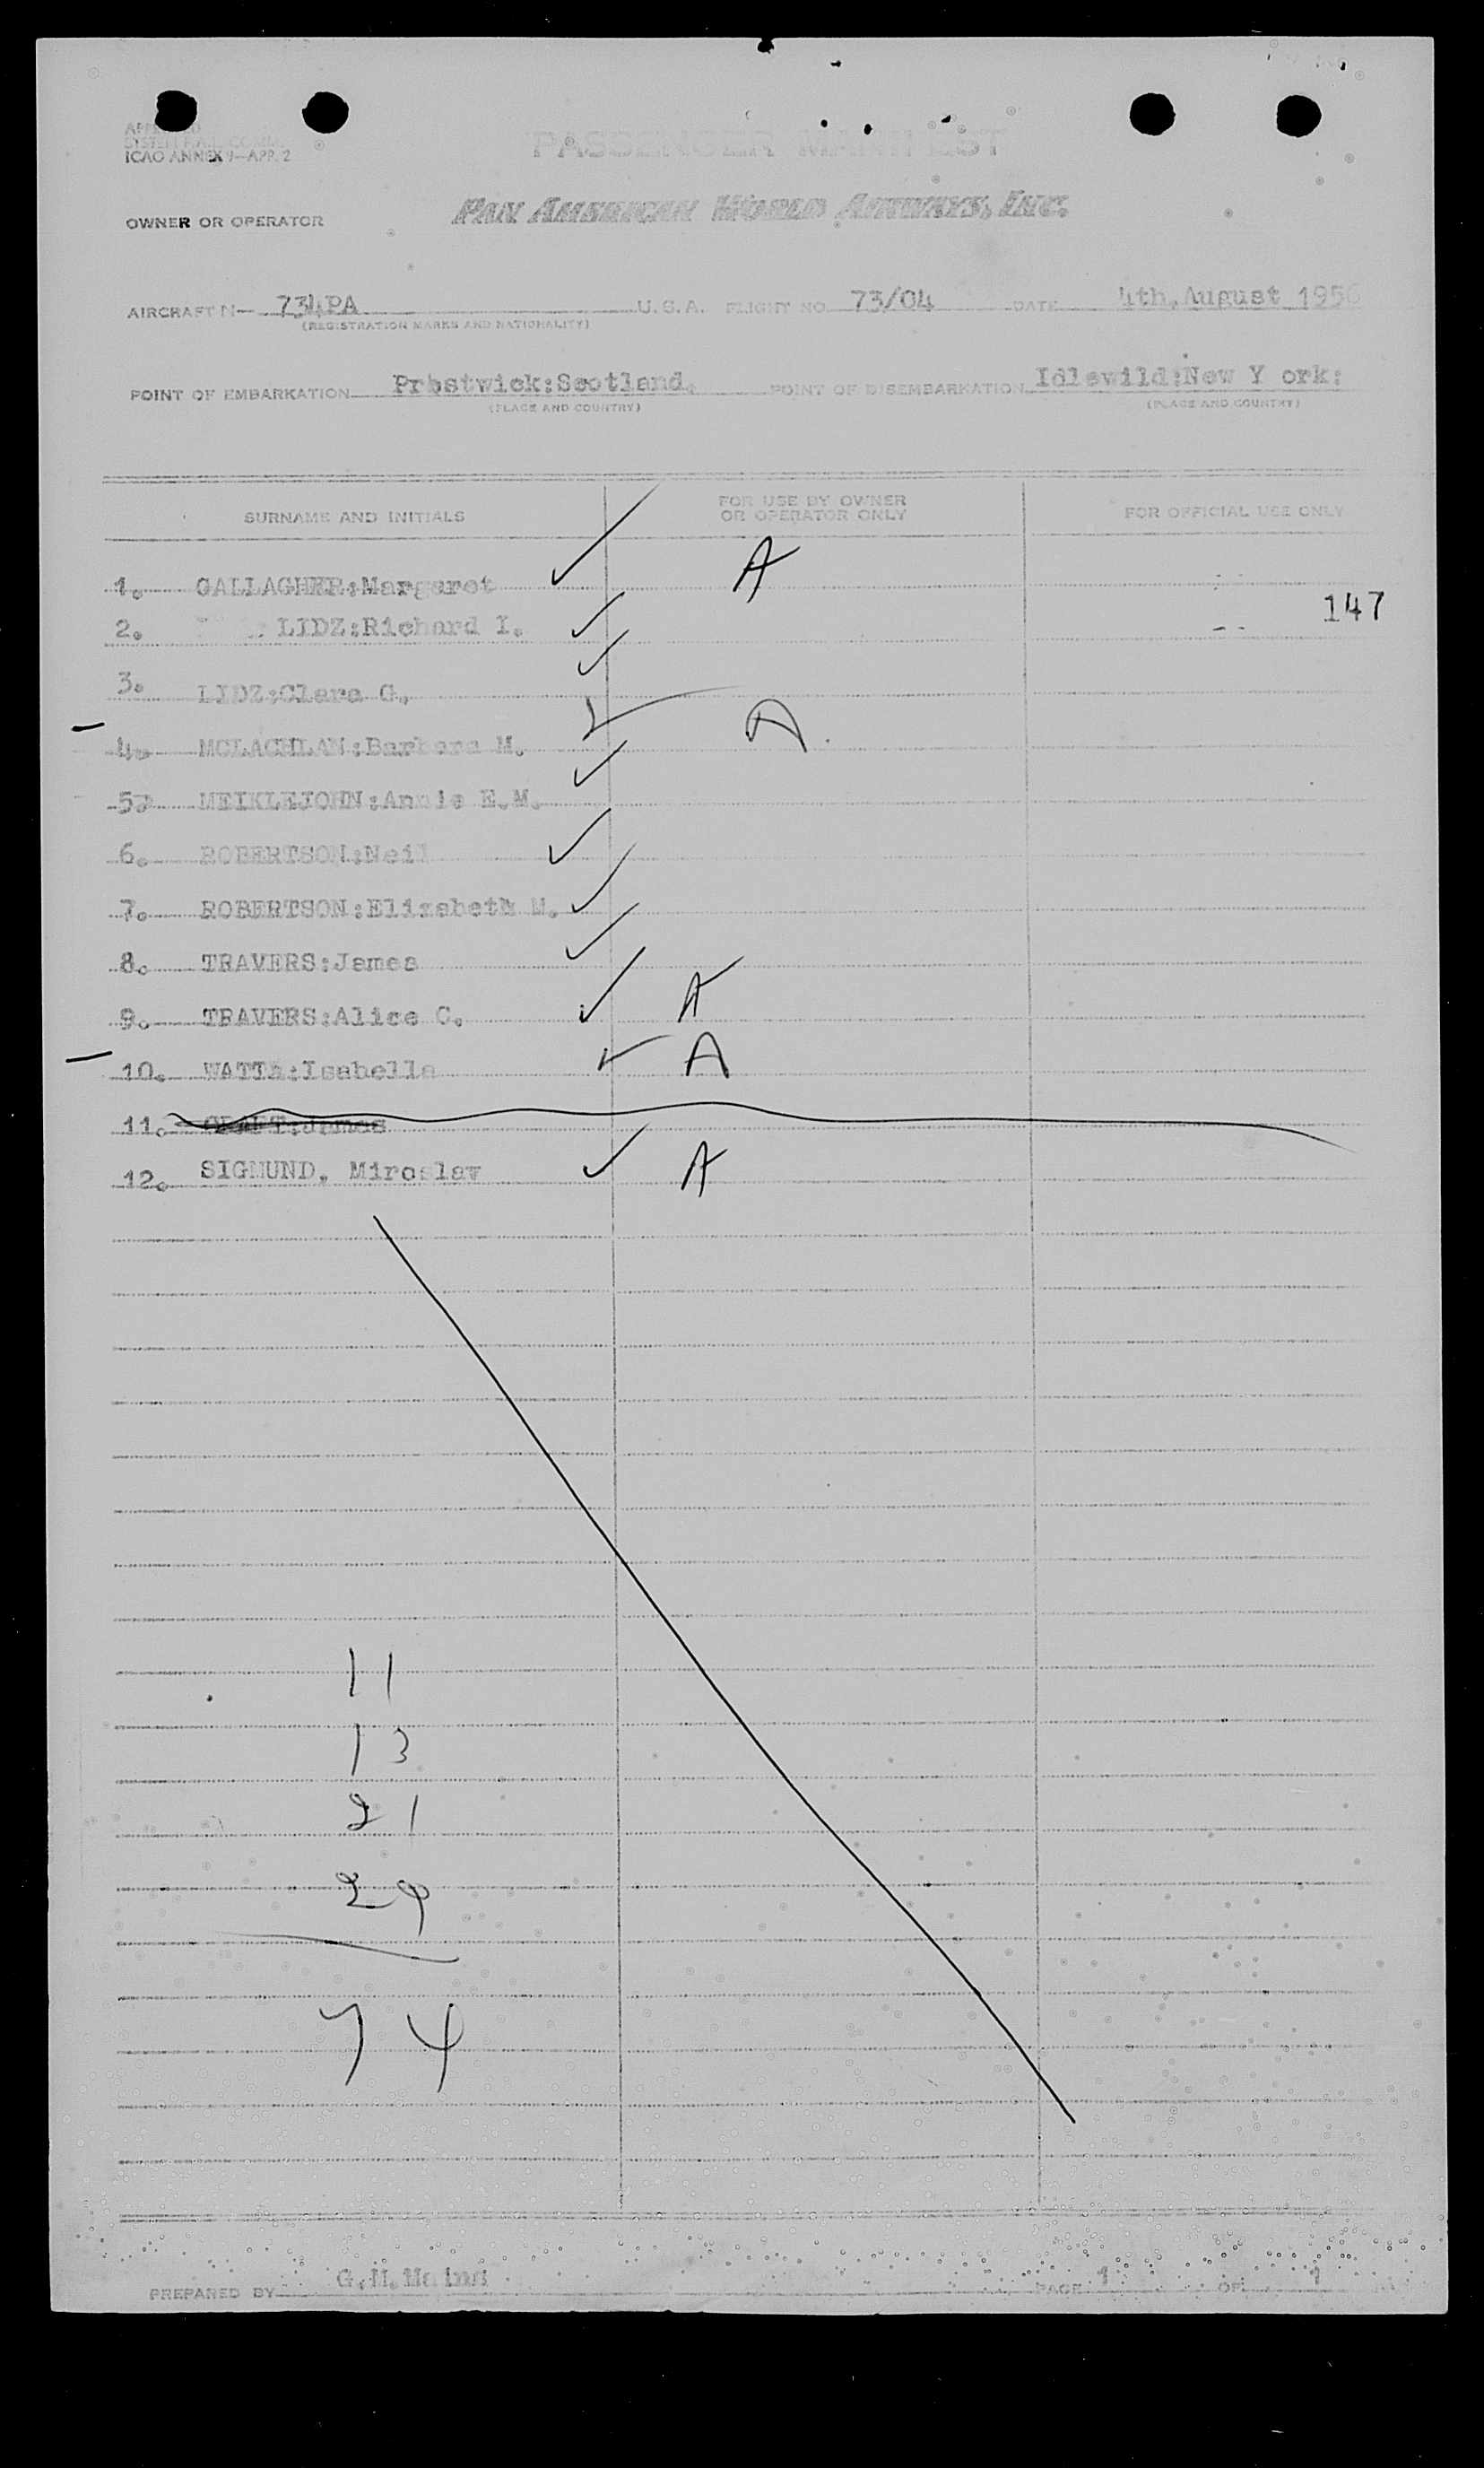 ICAO ANNEX 9—APP. 2
PASSENGER MANIFEST
OWNER OR OPERATOR PAN AMERICAN WORLD AIRWAYS, INC.
AIRCRAFT N— 734PA U.S.A. FLIGHT NO. 73/04 DATE 4th, August 1956
(REGISTRATION MARKS AND NATIONALITY)
POINT OF EMBARKATION Prestwick:Scotland. POINT OF DISEMBARKATION Idlewild:New Y ork:
(PLACE AND COUNTRY) (PLACE AND COUNTRY)
SURNAME AND INITIALS FOR USE BY OWNER OR OPERATOR ONLY FOR OFFICIAL USE ONLY
1. GALLAGHER:Margaret ✓ A
147
2. LIDZ:Richard I. ✓
3. LIDZ:Clara G. ✓
4. MCLACHLAN:Barbara M. ✓ A
5. MEIKLEJOHN:Annie E.M. ✓
6. ROBERTSON:Neil ✓
7. ROBERTSON:Elizabeth M. ✓
8. TRAVERS:James ✓
9. TRAVERS:Alice C. ✓ A
10. Isabella ✓ A
11. James
12. SIGMUND, Miroslav ✓ A
11
13
21
29
74
PREPARED BY G.H. PAGE 1 OF 1